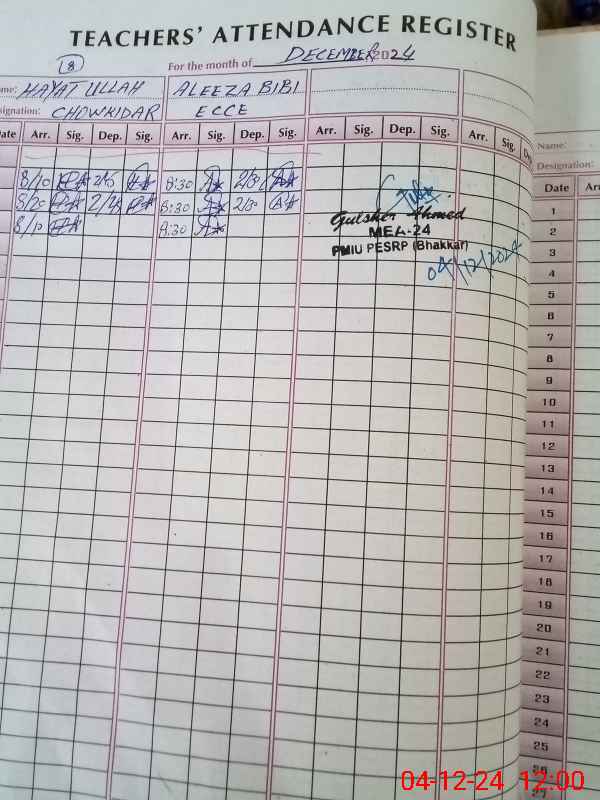 TEACHERS' ATTENDANCE REGISTER
8 For the month of DECEMBER 2024
me: HAYAT ULLAH ALEEZA BIBI
signation: CHOWKIDAR ECCE
ate Arr. Sig. Dep. Sig. Arr. Sig. Dep. Sig. Arr. Sig. Dep. Sig. Arr. Sig.
8/10 8:30 2/30
8/20 8:30 2/30
8/10 8:30
Gulsher Ahmed
MEA-24
PMIU PESRP (Bhakkar)
04/12/2024
Name:
Designation:
Date Arr
1
2
3
4
5
6
7
8
9
10
11
12
13
14
15
16
17
18
19
20
21
22
23
24
25
26
27
04-12-24 12:00